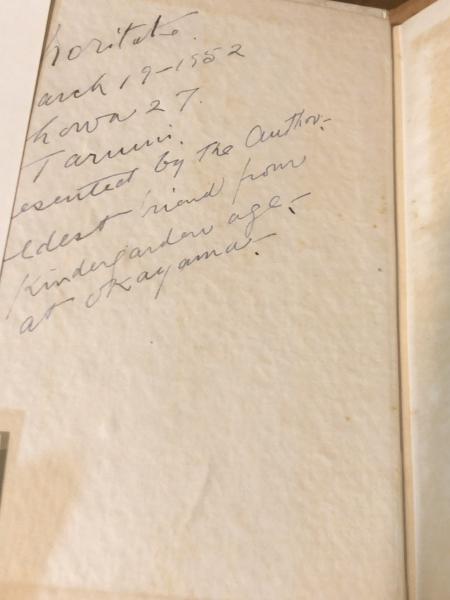 horitake.
arch 19-1952
howa 27.
Tarumi.
esented by the Author.
ldest friend from
Kindergarden age.
at Okayama.